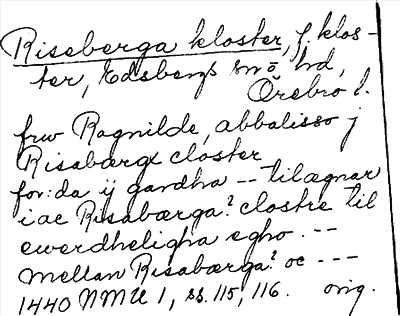 Riseberga kloster, f. klos-
ter, Edsbergs sn o hd,
Örebro l.
frw Ragnilde, abbatisso j
Risabærgx closter
for: da ij gardha -- tilægnar
iac Risabærga? clostre til
ewerdheligha egho. --
mellan Risabærga? oc ---
1440 NMU 1, ss. 115, 116. orig.